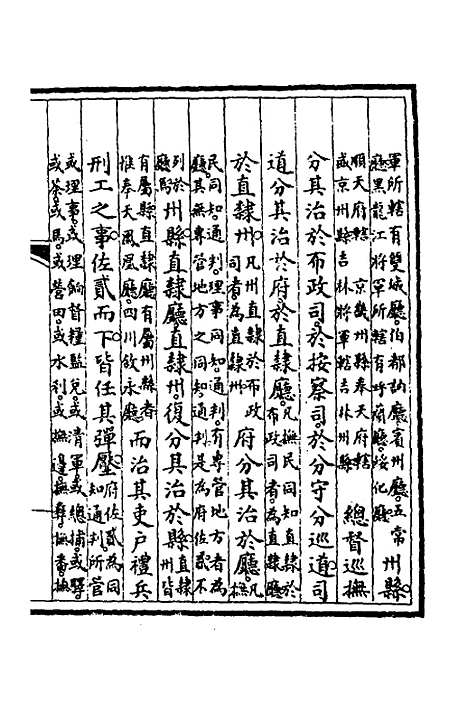 軍所轄有雙城廳。伯都訥廳。賓州廳。五常
廳。黑龍江將軍所轄有呼蘭廳。綏化廳。
州縣。
順天府轄　京畿州縣奉天府轄
盛京州縣吉林將軍轄吉林州縣
總督巡撫
分其治於布政司。於按察司。於分守分巡道。司
道分其治於府。於直隸廳。
凡撫民同知直隸於
布政司者。為直隸廳
於直隸州。
凡州直隸於布政
司者。為直隸州
府分其治於廳。
凡
撫
民同知。通判。有專管地方者為
廳。其無專管地方之同知通判。是為府佐貳。不
列於
廳焉
州縣。直隸廳。直隸州。復分其治於縣。
直隸
州皆
有屬縣。直隸廳有屬州縣者
惟奉天鳳凰廳四川敘永廳
而治其吏戶禮兵
刑工之事。佐貳而下。皆任其彈壓。
府佐貳為同
知通判。所管
或理事。或理餉督糧監兌。或清軍。或總捕。或驛
或茶。或馬。或營田。或水利。或撫邊。撫彝。撫番。撫